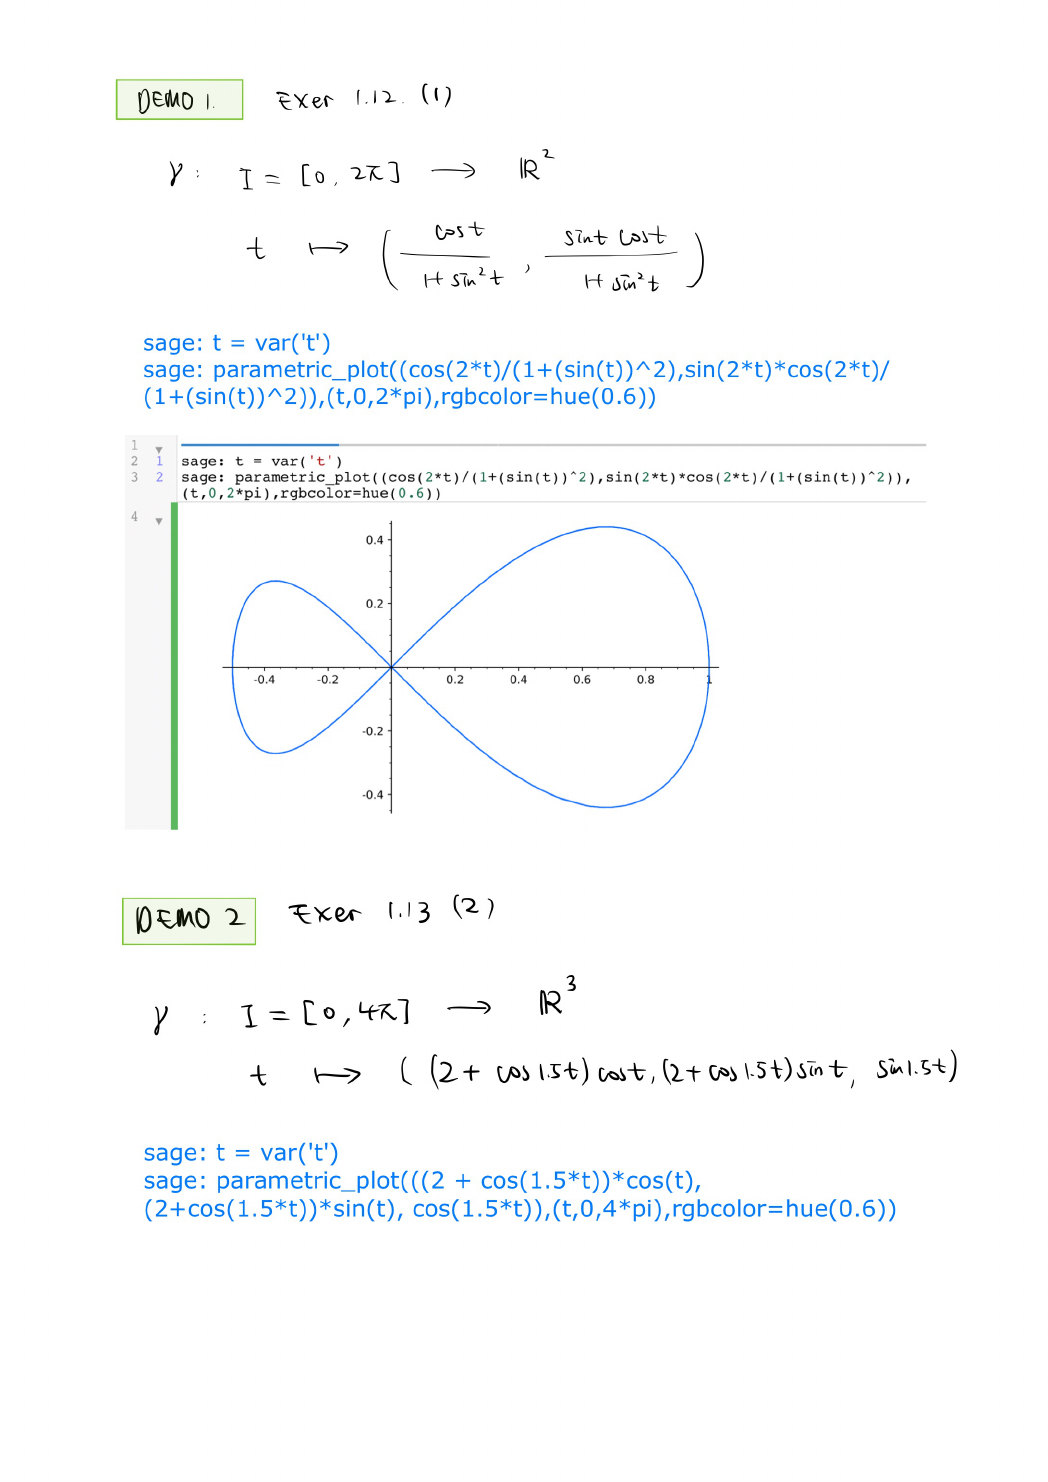 DEMO 1. Exer 1.12. (1)
γ : I = [0, 2π] ⟶ ℝ²
t ⟼ ( cos t / 1+ sin² t , sin t cos t / 1+ sin² t )
sage: t = var('t')
sage: parametric_plot((cos(2*t)/(1+(sin(t))^2),sin(2*t)*cos(2*t)/
(1+(sin(t))^2)),(t,0,2*pi),rgbcolor=hue(0.6))
1
2 1 sage: t = var('t')
3 2 sage: parametric_plot((cos(2*t)/(1+(sin(t))^2),sin(2*t)*cos(2*t)/(1+(sin(t))^2)),
(t,0,2*pi),rgbcolor=hue(0.6))
4
0.4
0.2
-0.4 -0.2 0.2 0.4 0.6 0.8 1
-0.2
-0.4
DEMO 2 Exer 1.13 (2)
γ : I = [0, 4π] ⟶ ℝ³
t ⟼ ( (2 + cos 1.5t) cos t, (2 + cos 1.5t) sin t, sin 1.5t)
sage: t = var('t')
sage: parametric_plot(((2 + cos(1.5*t))*cos(t),
(2+cos(1.5*t))*sin(t), cos(1.5*t)),(t,0,4*pi),rgbcolor=hue(0.6))